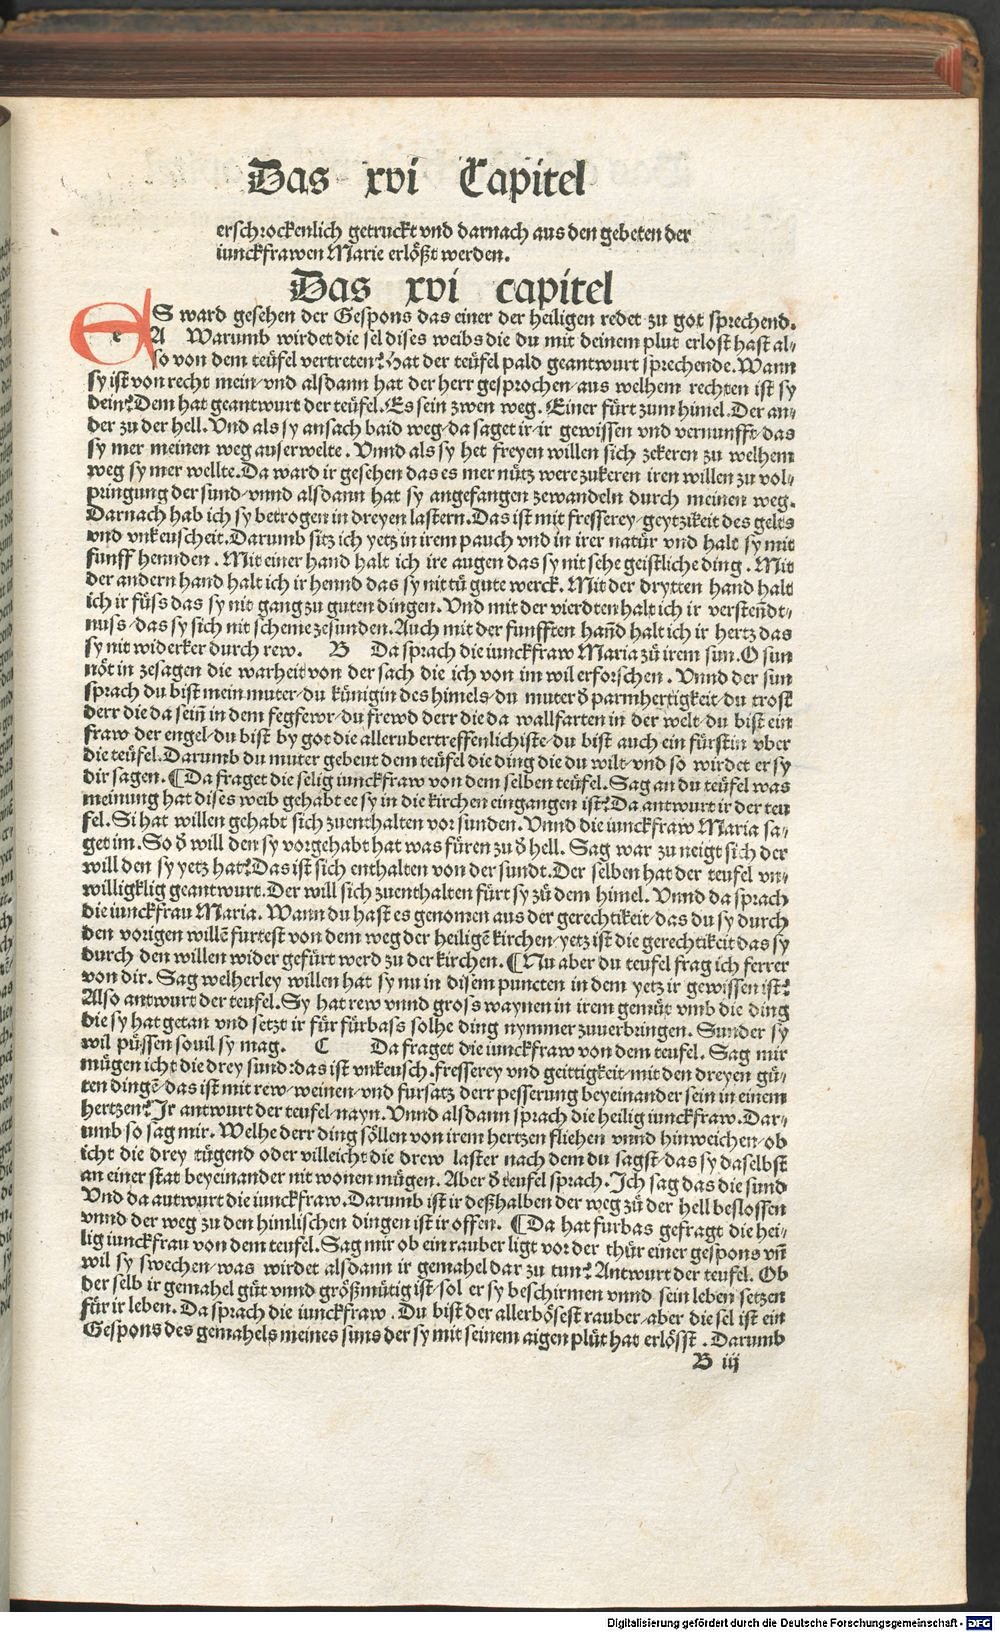 Das xvi Capitel
erschrockenlich getruckt vnd darnach aus den gebeten der
iunckfrawen Marie erlößt werden.
Das xvi capitel
ES ward gesehen der Gespons das einer der heiligen redet zu got sprechend.
A Warumb wirdet die sel dises weibs die du mit deinem plut erlost hast al⸗
so von dem teüfel vertreten? Hat der teüfel pald geantwurt sprechende. Wann
sy ist von recht mein/ vnd alsdann hat der herr gesprochen/ aus welhem rechten ist sy
dein? Dem hat geantwurt der teüfel. Es sein zwen weg. Einer fürt zum himel. Der an⸗
der zu der hell. Vnd als sy ansach baid weg/ da saget ir/ ir gewissen vnd vernunfft/ das
sy mer meinen weg auserwelte. Vnnd als sy het freyen willen sich zekeren zu welhem
weg sy mer wellte. Da ward ir gesehen das es mer nütz were zukeren iren willen zu vol⸗
pringung der sund/ vnnd alsdann hat sy angefangen zewandeln durch meinen weg.
Darnach hab ich sy betrogen in dreyen lastern. Das ist mit fresserey/ geytzikeit des gelts
vnd vnkeuscheit. Darumb sitz ich yetz in irem pauch vnd in irer natür vnd halt sy mit
funff hennden. Mit einer hand halt ich ire augen das sy nit sehe geistliche ding. Mit
der andern hand halt ich ir hennd das sy nit tü gute werck. Mit der drytten hand halt
ich ir füss das sy nit gang zu guten dingen. Vnd mit der vierdten halt ich ir versteñdt⸗
nuss/ das sy sich nit scheme zesunden. Auch mit der funfften hañd halt ich ir hertz das
sy nit widerker durch rew. B Da sprach die iunckfraw Maria zü irem sun. O sun
nöt in zesagen die warheit von der sach die ich von im wil erforschen. Vnnd der sun
sprach du bist mein muter/ du künigin des himels/ du muter ð parmhertigkeit/ du trost
derr die da seiñ in dem fegfewr/ du frewd derr die da wallfarten in der welt/ du bist ein
fraw der engel/ du bist by got die allerubertreffenlichiste/ du bist auch ein fürstin vber
die teüfel. Darumb du muter gebeut dem teüfel die ding die du wilt/ vnd so wirdet er sy
dir sagen. ¶ Da fraget die selig iunckfraw von dem selben teüfel. Sag an du teüfel was
meinung hat dises weib gehabt ee sy in die kirchen eingangen ist? Da antwurt ir der teu
fel. Si hat willen gehabt sich zuenthalten vor sunden. Vnnd die iunckfraw Maria sa⸗
get im. So ð will den sy vorgehabt hat was füren zu ð hell. Sag war zu neigt sich der
will den sy yetz hat? Das ist sich enthalten von der sundt. Der selben hat der teufel vn⸗
willigklig geantwurt. Der will sich zuenthalten fürt sy zü dem himel. Vnnd da sprach
die iunckfrau Maria. Wann du hast es genomen aus der gerechtikeit/ das du sy durch
den vorigen willē furtest von dem weg der heiligē kirchen/ yetz ist die gerechtikeit das sy
durch den willen wider gefürt werd zu der kirchen. ¶ Nu aber du teufel frag ich ferrer
von dir. Sag welherley willen hat sy nu in disem puncten in dem yetz ir gewissen ist?
Also antwurt der teufel. Sy hat rew vnnd gross waynen in irem gemüt vmb die ding
die sy hat getan vnd setzt ir für fürbass solhe ding nymmer zuuerbringen. Sunder sy
wil püssen souil sy mag. C Da fraget die iunckfraw von dem teufel. Sag mir
mügen icht die drey sund: das ist vnkeusch. fresserey vnd geittigkeit/ mit den dreyen gü⸗
ten dingē/ das ist mit rew/ weinen/ vnd fursatz derr pesserung beyeinander sein in einem
hertzen? Jr antwurt der teufel/ nayn. Vnnd alsdann sprach die heilig iunckfraw. Dar⸗
umb so sag mir. Welhe derr ding söllen von irem hertzen fliehen vnnd hinweichen/ ob
icht die drey tügend oder villeicht die drew laster nach dem du sagst/ das sy daselbst
an einer stat beyeinander nit wonen mügen. Aber ð teufel sprach. Jch sag das die sund
Vnd da autwurt die iunckfraw. Darumb ist ir deßhalben der weg zü der hell beslossen
vnnd der weg zu den himlischen dingen ist ir offen. ¶ Da hat furbas gefragt die hei⸗
lig iunckfrau von dem teufel. Sag mir ob ein rauber ligt vor der thür einer gespons vñ
wil sy swechen/ was wirdet alsdann ir gemahel dar zu tun? Antwurt der teufel. Ob
der selb ir gemahel güt vnnd größmütig ist/ sol er sy beschirmen vnnd sein leben setzen
für ir leben. Da sprach die iunckfraw. Du bist der allerbösest rauber/ aber die sel ist ein
Gespons des gemahels meines suns der sy mit seinem aigen plüt hat erlösst. Darumb
B iij
Digitalisierung gefördert durch die Deutsche Forschungsgemeinschaft - DFG